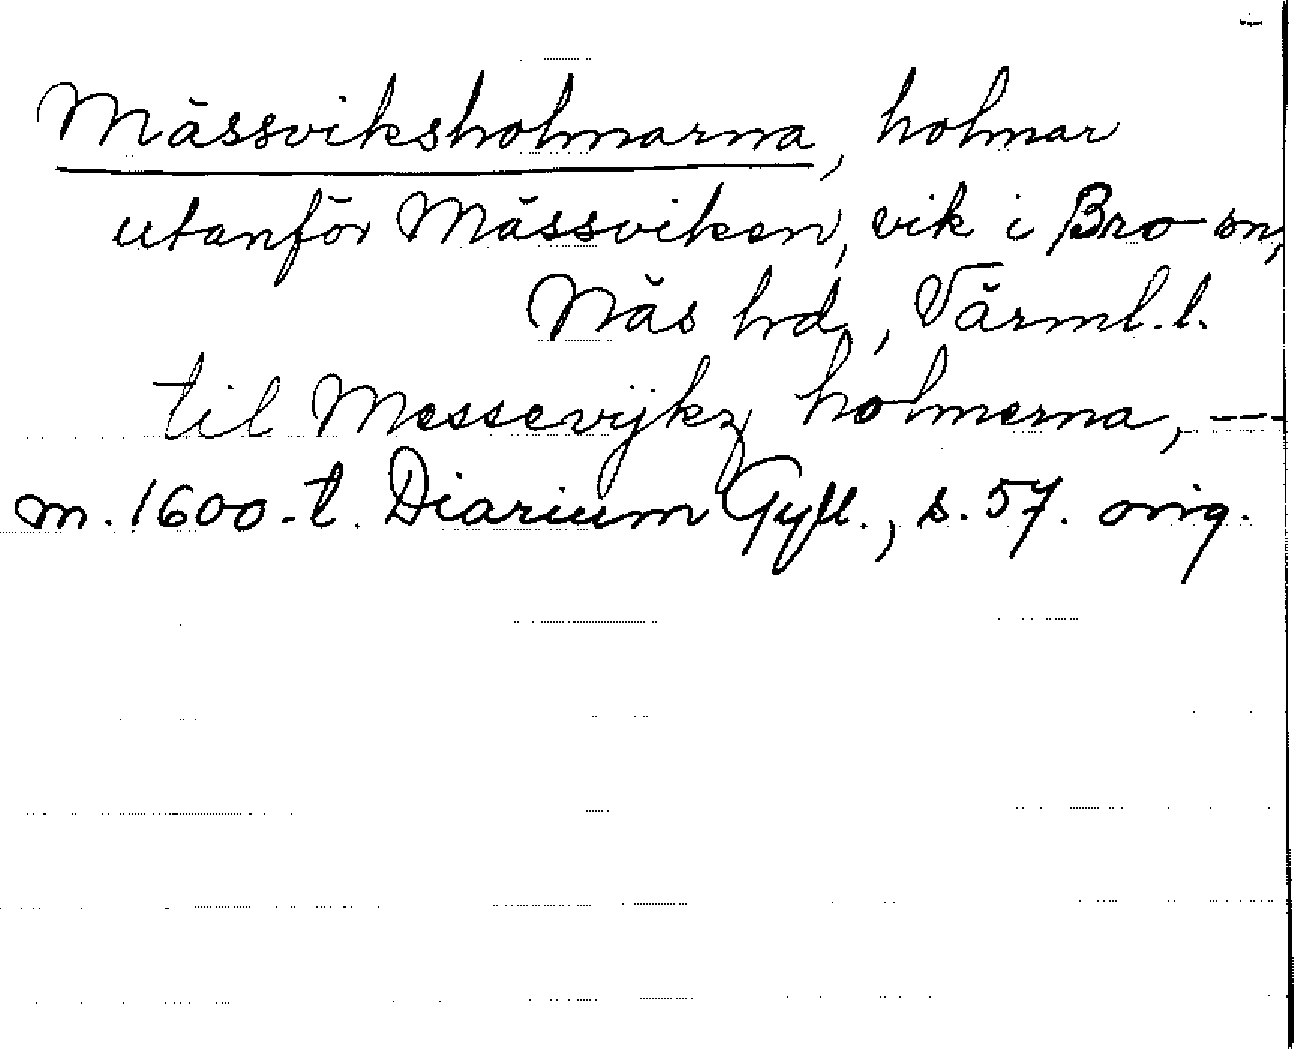 Mässviksholmarna, holmar
utanför Mässviken, vik i Bro sn,
Näs hd, Värml. l.
til Messevijkz holmerna, ---
m. 1600-t. Diarium Gyll., s. 57. orig.